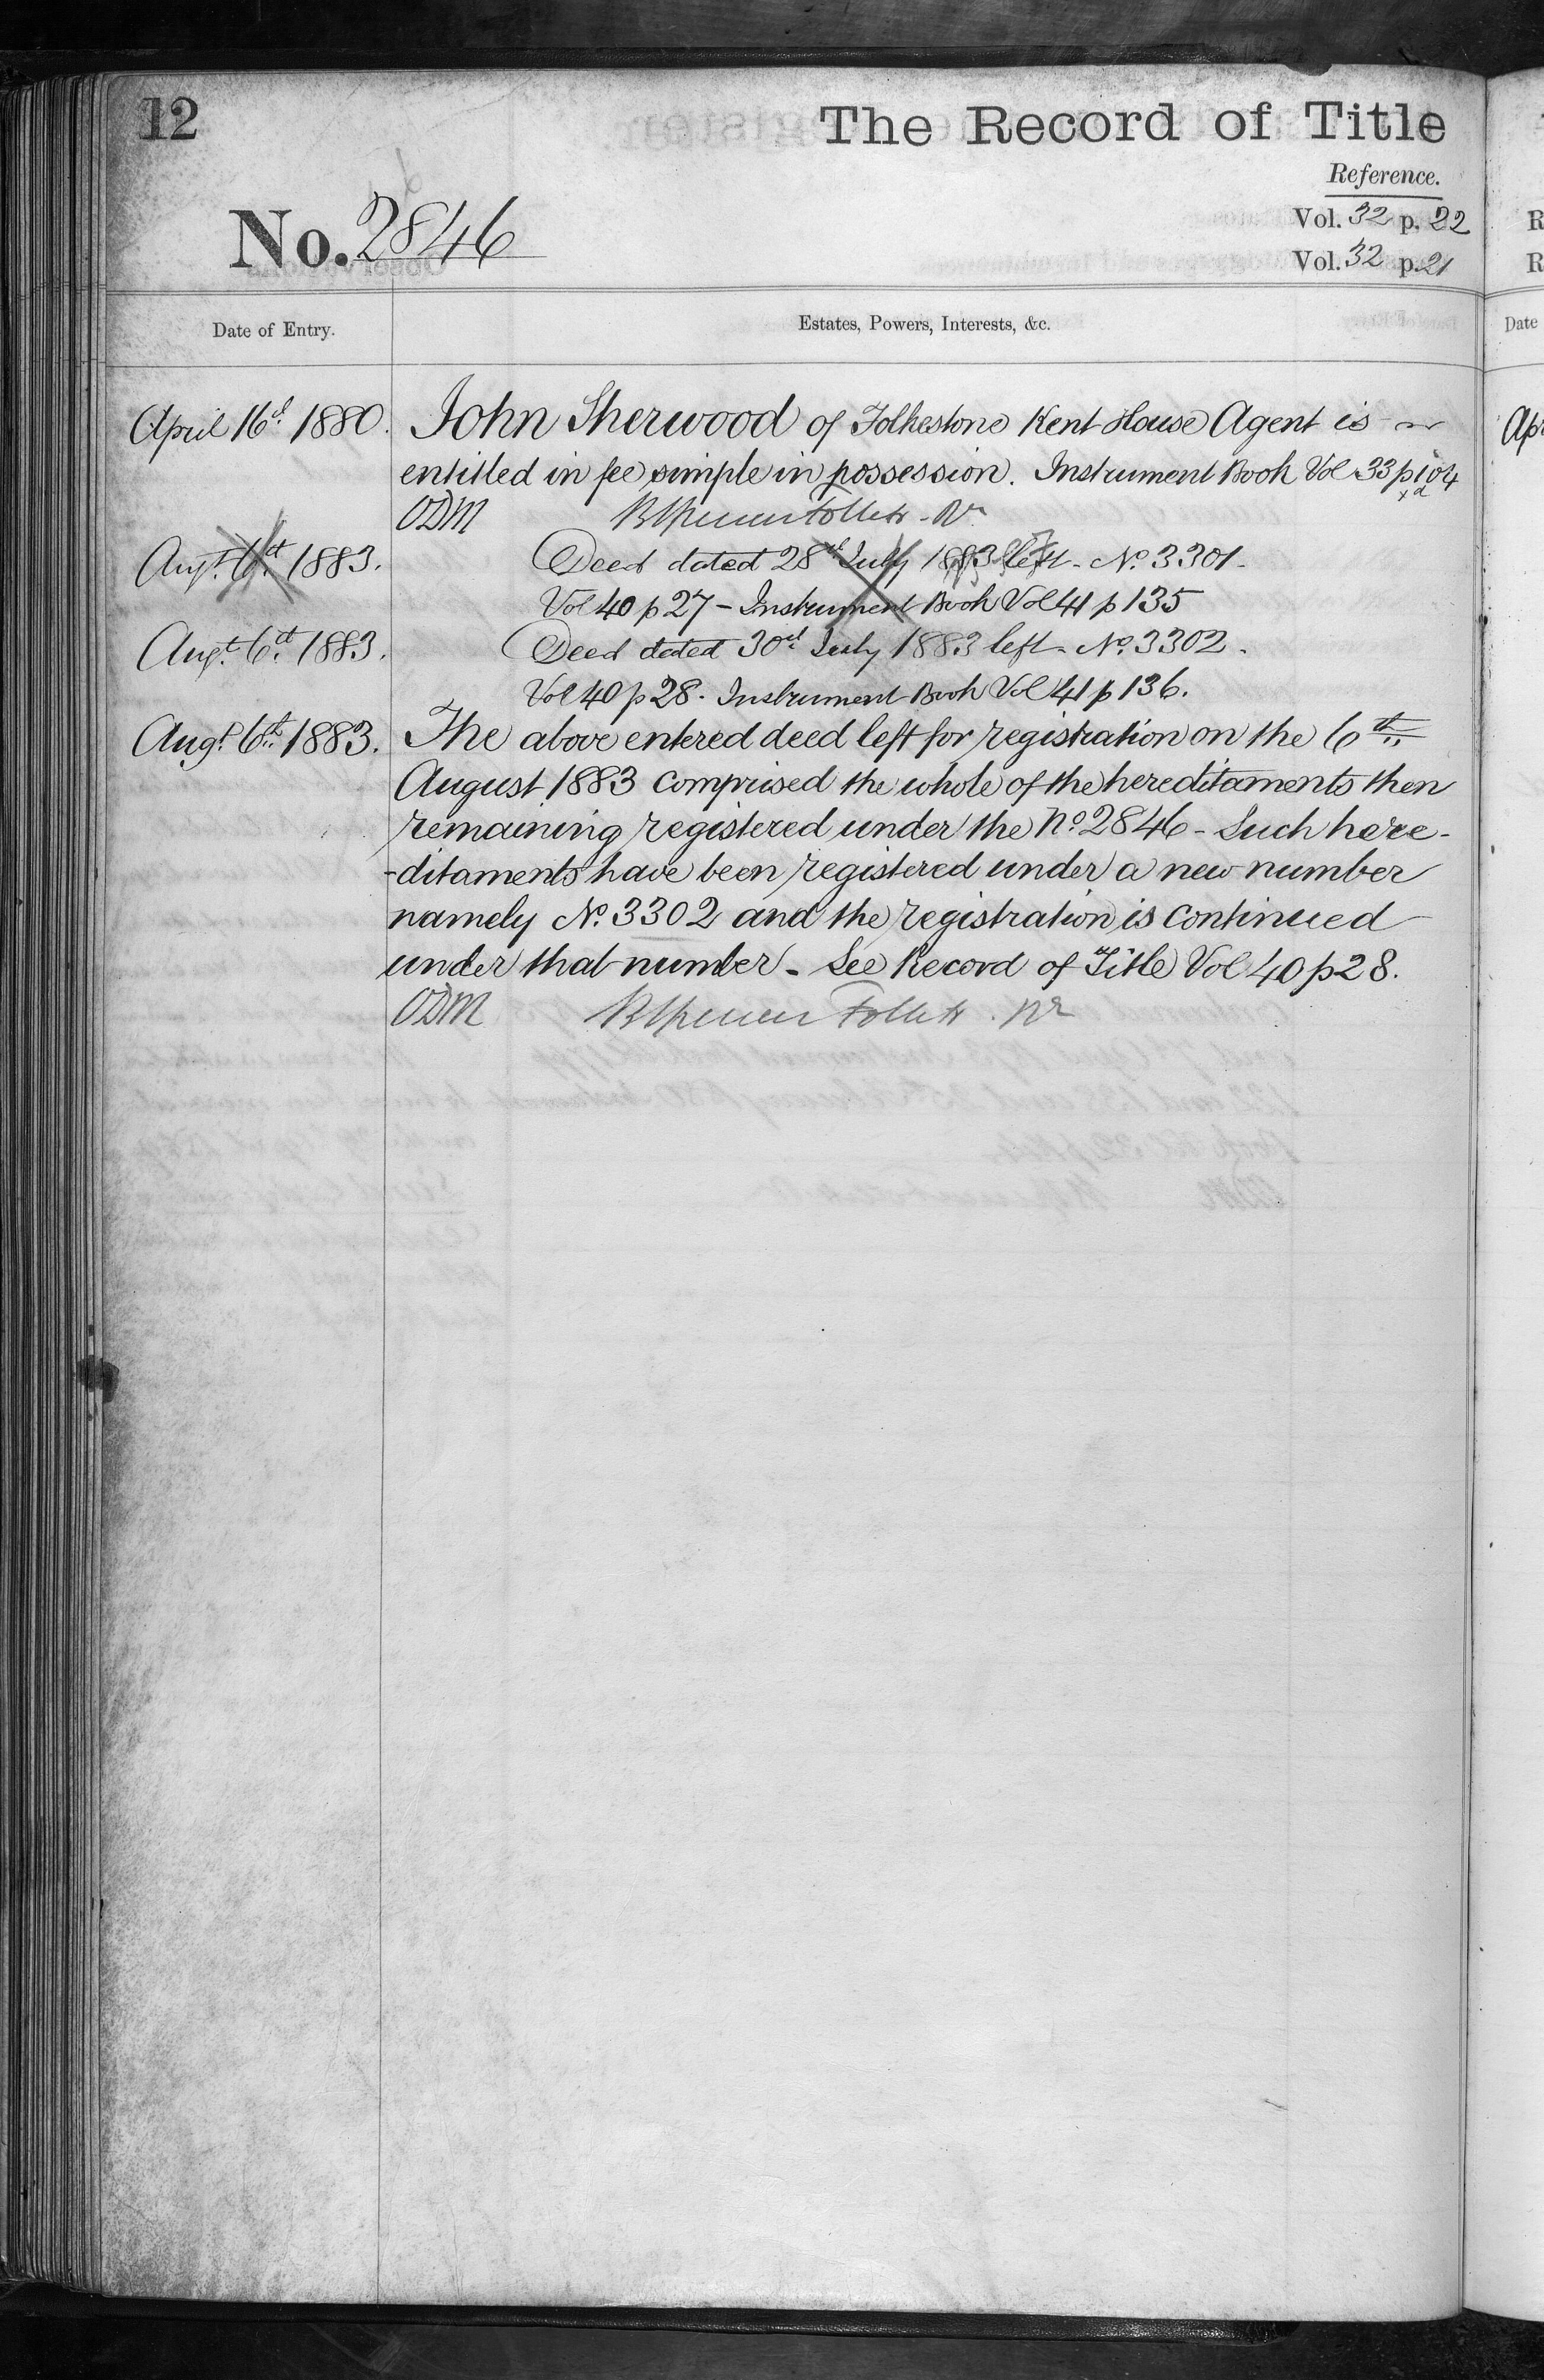 12
The Record of Title
Reference.
No. 2846
Vol. 32 p. 22
Vol. 32 p. 21
Date of Entry.
Estates, Powers, Interests, &c.
April 16th 1880. John Sherwood of Folkestone Kent House Agent is
entitled in fee simple in possession. Instrument Book Vol 33 p 104
ODM
Augt. 6th 1883. Deed dated 28th July 1883 left - No. 3301 -
Vol 40 p 27 - Instrument Book Vol 41 p 135
Augt. 6th 1883. Deed dated 30th July 1883 left - No. 3302 -
Vol 40 p 28. Instrument Book Vol 41 p 136.
Augt. 6th 1883. The above entered deed left for registration on the 6th
August 1883 comprised the whole of the hereditaments then
remaining registered under the No. 2846 - Such here-
-ditaments have been registered under a new number
namely No. 3302 and the registration is continued
under that number - See Record of Title Vol 40 p 28.
ODM
Date